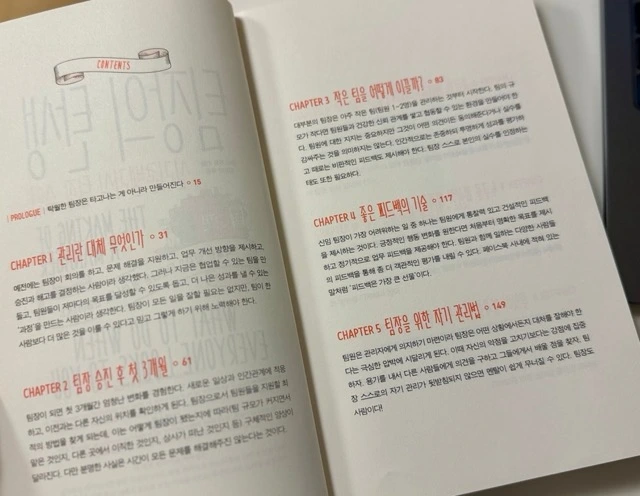 CONTENTS
PROLOGUE | 탁월한 팀장은 타고나는 게 아니라 만들어진다 ○ 15
CHAPTER 1 관리란 대체 무엇인가 ○ 31
예전에는 팀장이 회의를 하고, 문제 해결을 지원하고, 업무 개선 방향을 제시하고,
승진과 해고를 결정하는 사람이라 생각했다. 그러나 지금은 협업할 수 있는 팀을 만
들고, 팀원들이 저마다의 목표를 달성할 수 있도록 돕고, 더 나은 성과를 낼 수 있는
'과정'을 만드는 사람이라 생각한다. 팀장이 모든 일을 잘할 필요는 없지만, 팀이 한
사람보다 더 많은 것을 이룰 수 있다고 믿고 그렇게 하기 위해 노력해야 한다.
CHAPTER 2 팀장 승진 후 첫 3개월 ○ 61
팀장이 되면 첫 3개월간 엄청난 변화를 경험한다. 새로운 일상과 인간관계에 적응
하고, 이전과는 다른 자신의 위치를 확인하게 된다. 팀장으로서 팀원들을 지원할 최
적의 방법을 찾게 되는데, 이는 어떻게 팀장이 됐는지에 따라(팀 규모가 커지면서
맡은 것인지, 다른 곳에서 이직한 것인지, 상사가 떠난 것인지 등) 구체적인 양상이
달라진다. 다만 분명한 사실은 시간이 모든 문제를 해결해주진 않는다는 것이다.
CHAPTER 3 작은 팀을 어떻게 이끌까? ○ 83
대부분의 팀장은 아주 작은 팀(팀원 1~2명)을 관리하는 것부터 시작한다. 팀의 규
모가 작다면 팀원들과 건강한 신뢰 관계를 쌓고 협동할 수 있는 환경을 만들어야 한
다. 팀원에 대한 지지는 중요하지만 그것이 어떤 의견이든 동의해준다거나 실수를
감싸주는 것을 의미하지는 않는다. 인간적으로는 존중하되 투명하게 성과를 평가하
고 때로는 비판적인 피드백도 제시해야 한다. 팀장 스스로 본인의 실수를 인정하는
태도 또한 필요하다.
CHAPTER 4 좋은 피드백의 기술 ○ 117
신임 팀장이 가장 어려워하는 일 중 하나는 팀원에게 통찰력 있고 건설적인 피드백
을 제시하는 것이다. 긍정적인 행동 변화를 원한다면 처음부터 명확한 목표를 제시
하고 정기적으로 업무 피드백을 제공해야 한다. 팀원과 함께 일하는 다양한 사람들
의 피드백을 통해 좀 더 객관적인 평가를 내릴 수 있다. 페이스북 사내에 적혀 있는
말처럼 '피드백은 가장 큰 선물'이다.
CHAPTER 5 팀장을 위한 자기 관리법 ○ 149
팀원은 관리자에게 의지하기 마련이라 팀장은 어떤 상황에서든지 대처를 잘해야 한
다는 극심한 압박에 시달리게 된다. 이때 자신의 약점을 고치기보다는 강점에 집중
하자. 용기를 내서 다른 사람들에게 의견을 구하고 그들에게서 배울 점을 찾자. 팀
장 스스로의 자기 관리가 뒷받침되지 않으면 멘탈이 쉽게 무너질 수 있다. 팀장도
사람이다!